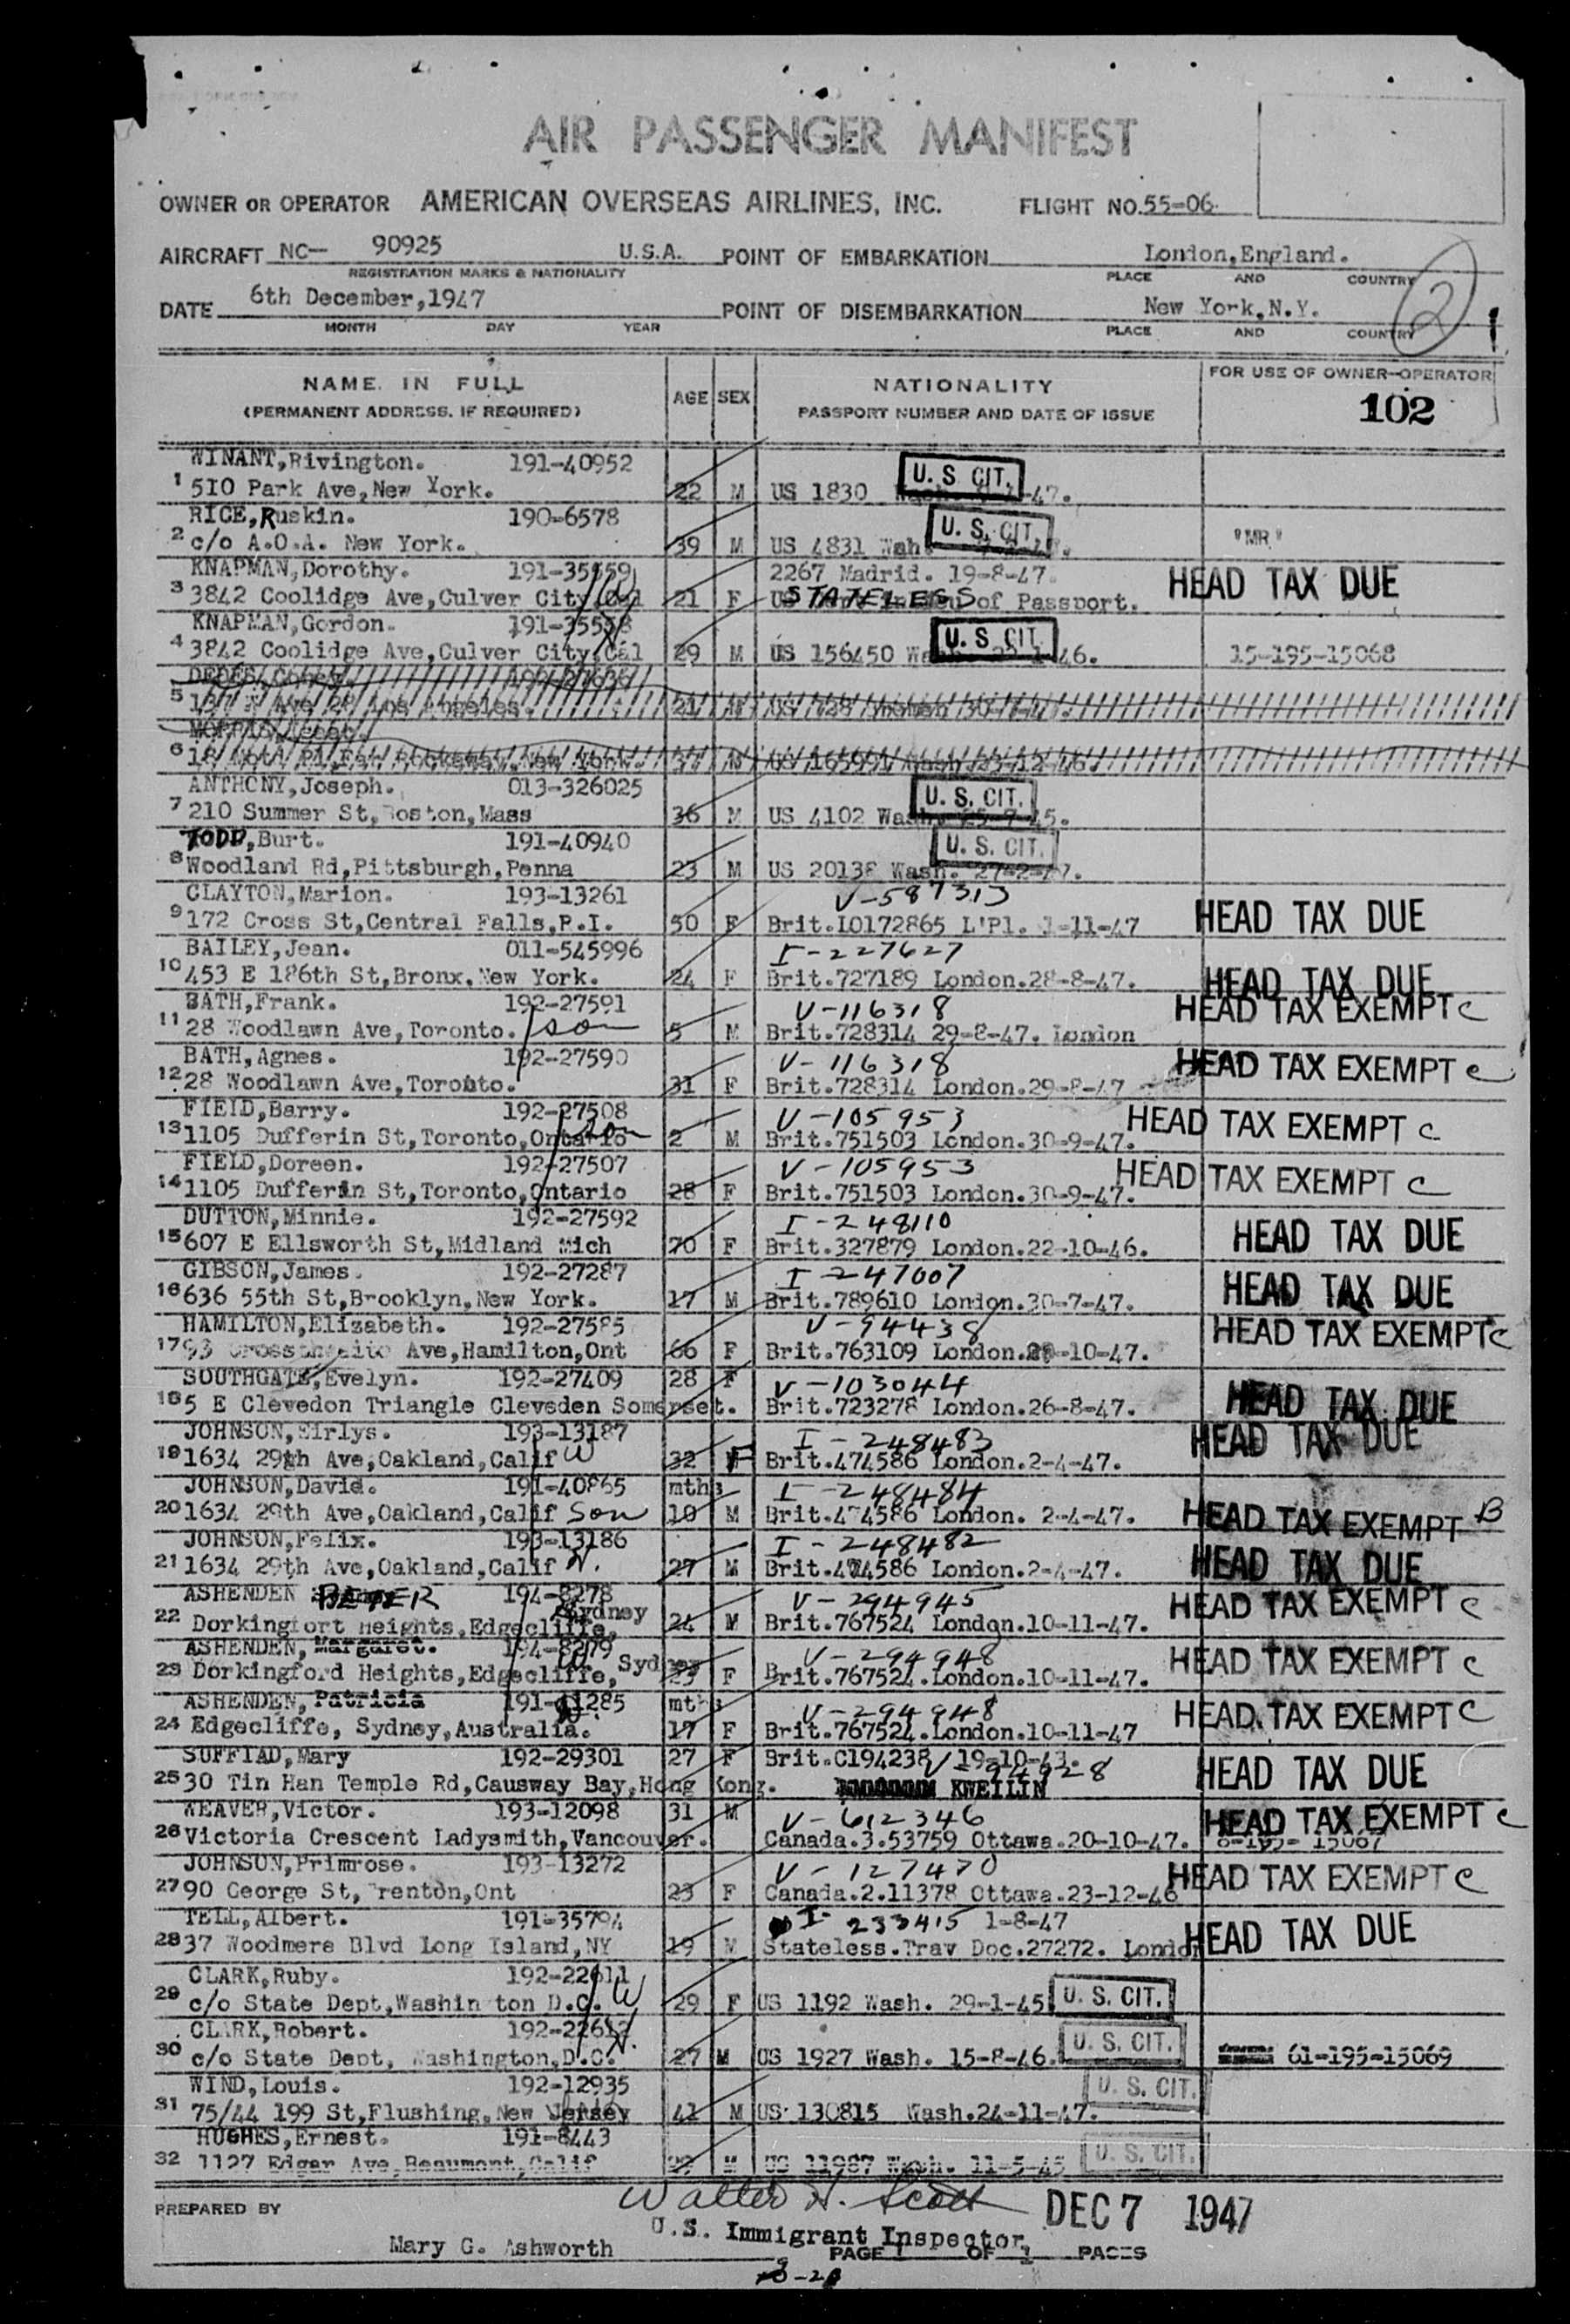 AIR PASSENGER MANIFEST
OWNER OR OPERATOR AMERICAN OVERSEAS AIRLINES, INC. FLIGHT NO. 55-06
AIRCRAFT NC- 90925 U.S.A. POINT OF EMBARKATION London,England.
REGISTRATION MARKS & NATIONALITY PLACE AND COUNTRY
DATE 6th December,1947 POINT OF DISEMBARKATION New York,N.Y. 2
MONTH DAY YEAR PLACE AND COUNTRY
NAME IN FULL AGE SEX NATIONALITY FOR USE OF OWNER-OPERATOR
(PERMANENT ADDRESS, IF REQUIRED) PASSPORT NUMBER AND DATE OF ISSUE 102
WINANT,Rivington. 191-40952 U. S. CIT.
1 510 Park Ave,New York. 22 M US 1830 47.
RICE,Ruskin. 190-6578 U. S. CIT.
2 c/o A.O.A. New York. 39 M US 4831 "MR"
KNAPMAN,Dorothy. 191-35559 2267 Madrid. 19-8-47. HEAD TAX DUE
3 3842 Coolidge Ave,Culver City,Cal 21 F STATELESS of Passport.
KNAPMAN,Gordon. 191-35558 U. S. CIT.
4 3842 Coolidge Ave,Culver City,Cal 29 M US 156450 46. 15-195-15068
5 21
6 37 M
ANTHONY,Joseph. 013-326025 U. S. CIT.
7 210 Summer St,Boston,Mass 36 M US 4102 Wash. 25-7-45.
TODD,Burt. 191-40940 U. S. CIT.
8 Woodland Rd,Pittsburgh,Penna 23 M US 20138 Wash. 27-2-47.
CLAYTON,Marion. 193-13261 V-587313
9 172 Cross St,Central Falls,R.I. 50 F Brit.10172865 L'Pl. 1-11-47 HEAD TAX DUE
BAILEY,Jean. 011-545996 I-227627
10 453 E 186th St,Bronx.New York. 24 F Brit.727189 London.28-8-47. HEAD TAX DUE
BATH,Frank. 192-27591 V-116318 HEAD TAX EXEMPT C
11 28 Woodlawn Ave,Toronto. son 5 M Brit.728314 29-8-47. London
BATH,Agnes. 192-27590 V-116318 HEAD TAX EXEMPT C
12 28 Woodlawn Ave,Toronto. 31 F Brit.728314 London.29-8-47
FIELD,Barry. 192-27508 V-105953 HEAD TAX EXEMPT C
13 1105 Dufferin St,Toronto,Ontario son 2 M Brit.751503 London.30-9-47.
FIELD,Doreen. 192-27507 V-105953 HEAD TAX EXEMPT C
14 1105 Dufferin St,Toronto,Ontario 28 F Brit.751503 London.30-9-47.
DUTTON,Minnie. 192-27592 I-248110 HEAD TAX DUE
15 607 E Ellsworth St,Midland Mich 70 F Brit.327879 London.22-10-46.
GIBSON,James. 192-27287 I-247007 HEAD TAX DUE
16 636 55th St,Brooklyn,New York. 17 M Brit.789610 London.30-7-47.
HAMILTON,Elizabeth. 192-27585 V-94438 HEAD TAX EXEMPT C
17 93 Ave,Hamilton,Ont 66 F Brit.763109 London. -10-47.
SOUTHGATE,Evelyn. 192-27409 28 F V-103044 HEAD TAX DUE
18 5 E Clevedon Triangle Clevsden Somerset. Brit.723278 London.26-8-47.
JOHNSON,Eirlys. 193-13187 I-248483 HEAD TAX DUE
19 1634 29th Ave,Oakland,Calif W 32 F Brit.474586 London.2-4-47.
JOHNSON,David. 191-40865 mths I-248484
20 1634 29th Ave,Oakland,Calif Son 10 M Brit.474586 London. 2-4-47. HEAD TAX EXEMPT B
JOHNSON,Felix. 193-13186 I-248482
21 1634 29th Ave,Oakland,Calif H. 27 M Brit.474586 London.2-4-47. HEAD TAX DUE
ASHENDEN PETER 194-8278 V-294945 HEAD TAX EXEMPT C
22 Dorkingfort Heights,Edgecliffe, Sydney 24 M Brit.767524 London.10-11-47.
ASHENDEN, Margaret. 194-8279 V-294948 HEAD TAX EXEMPT C
23 Dorkingford Heights,Edgecliffe, Sydney 23 F Brit.767524.London.10-11-47.
ASHENDEN, Patricia 191-41285 mths V-294948 HEAD TAX EXEMPT C
24 Edgecliffe, Sydney,Australia. 17 F Brit.767524.London.10-11-47
SUFFIAD,Mary 192-29301 27 F Brit.C194238 19-10-43. HEAD TAX DUE
25 30 Tin Han Temple Rd,Causway Bay,Hong Kong. KWEILIN
WEAVER,Victor. 193-12098 31 M V-612346 HEAD TAX EXEMPT C
26 Victoria Crescent Ladysmith,Vancouver. Canada.3.53759 Ottawa.20-10-47. 6-195-15067
JOHNSON,Primrose. 193-13272 V-127470 HEAD TAX EXEMPT C
27 90 George St,Trenton,Ont 23 F Canada.2.11378 Ottawa.23-12-46
TELL,Albert. 191-35794 I- 233415 1-8-47 HEAD TAX DUE
28 37 Woodmere Blvd Long Island,NY 19 M Stateless.Trav Doc.27272. London
CLARK,Ruby. 192-22611
29 c/o State Dept,Washington D.C. W 29 F US 1192 Wash. 29-1-45 U. S. CIT.
CLARK,Robert. 192-22612 H.
30 c/o State Dept, Washington,D.C. 27 M US 1927 Wash. 15-8-46. U. S. CIT. 61-195-15069
WIND,Louis. 192-12935 U. S. CIT.
31 75/44 199 St,Flushing,New Jersey 41 M US 130815 Wash.24-11-47.
HUGHES,Ernest. 191-8443
32 1127 Edgar Ave,Beaumont,Calif 29 M US 11987 Wash. 11-5-45 U. S. CIT.
PREPARED BY Walter H. Scott DEC 7 1947
Mary G. Ashworth U.S. Immigrant Inspector
PAGE 1 OF 1 PAGES